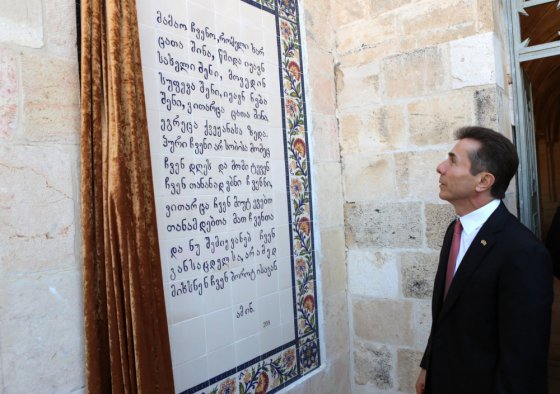 მამაო ჩვენო, რომელი ხარ
ცათა შინა, წმიდა იყავნ
სახელი შენი, მოვედინ
სუფევა შენი, იყავნ ნება
შენი, ვითარცა ცათა შინა
ეგრეცა ქვეყანასა ზედა.
პური ჩვენი არსობისა მომეც
ჩვენ დღეს და მომიტევენ
ჩვენ თანანადებნი ჩვენნი,
ვითარცა ჩვენ მიუტევებთ
თანამდებთა მათ ჩვენთა
და ნუ შემიყვანებ ჩვენ
განსაცდელსა, არამედ
მიხსნენ ჩვენ ბოროტისაგან
ამინ.